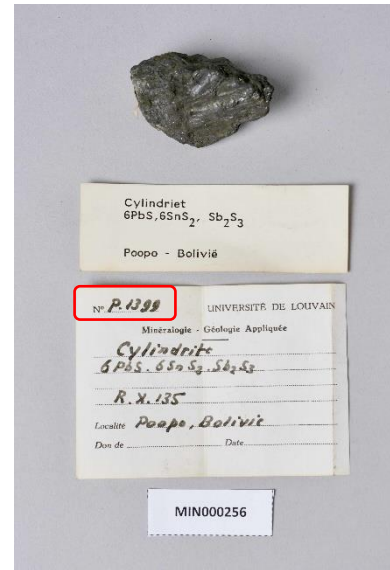 Cylindriet
6PbS,6SnS₂, Sb₂S₃
Poopo - Bolivië
Nº P.1399 UNIVERSITÉ DE LOUVAIN
Minéralogie - Géologie Appliquée
Cylindrite
6PbS.6SnS₂.Sb₂S₃
R.X.135
Localité Poopo, Bolivie
Don de Date
MIN000256